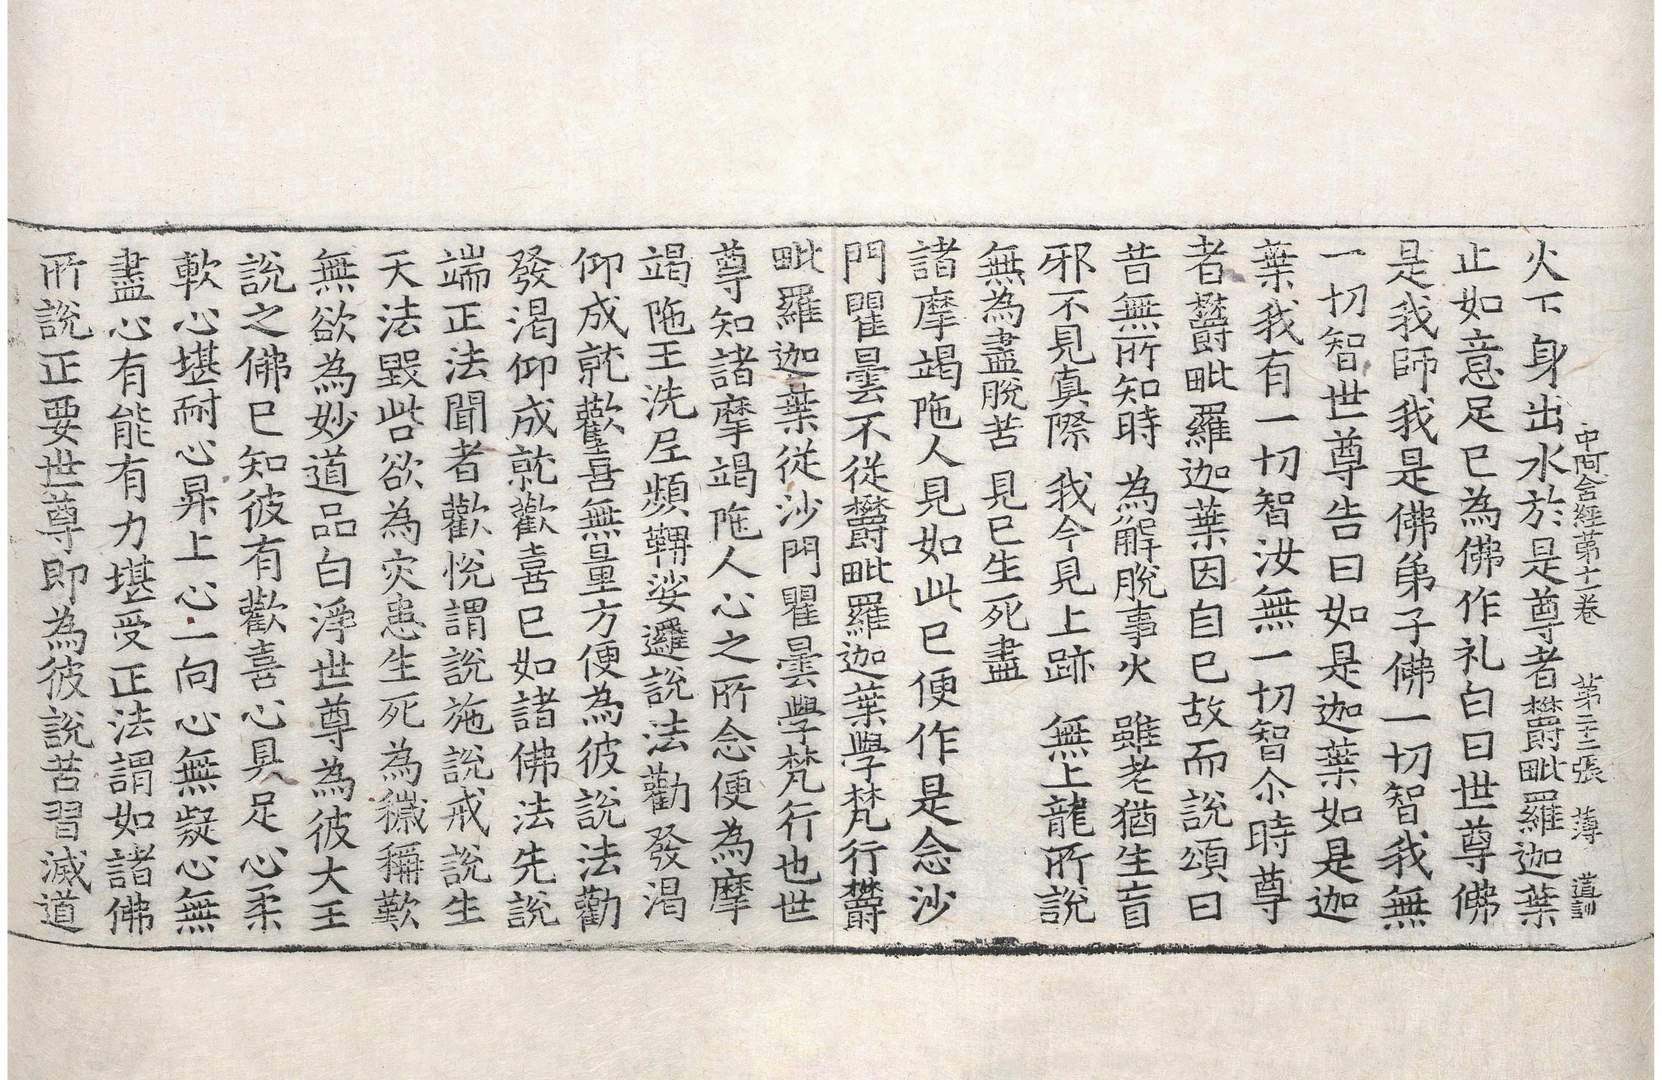 中阿含經第十一卷 第二十二張 薄 道訓
火下身出水於是尊者欝毗羅迦葉
止如意足已為佛作礼白曰世尊佛
是我師我是佛弟子佛一切智我無
一切智世尊告曰如是迦葉如是迦
葉我有一切智汝無一切智尒時尊
者欝毗羅迦葉因自已故而說頌曰
昔無所知時 為解脫事火 雖老猶生盲
邪不見真際 我今見上跡 無上龍所說
無為盡脫苦 見已生死盡
諸摩竭陁人見如此已便作是念沙
門瞿曇不從欝毗羅迦葉學梵行欝
毗羅迦葉從沙門瞿曇學梵行也世
尊知諸摩竭陁人心之所念便為摩
竭陁王洗尼頻鞞娑邏說法勸發渴
仰成就歡喜無量方便為彼說法勸
發渴仰成就歡喜已如諸佛法先說
端正法聞者歡悅謂說施說戒說生
天法毀呰欲為灾患生死為穢稱歎
無欲為妙道品白淨世尊為彼大王
說之佛已知彼有歡喜心具足心柔
軟心堪耐心昇上心一向心無疑心無
盖心有能有力堪受正法謂如諸佛
所說正要世尊即為彼說苦習滅道